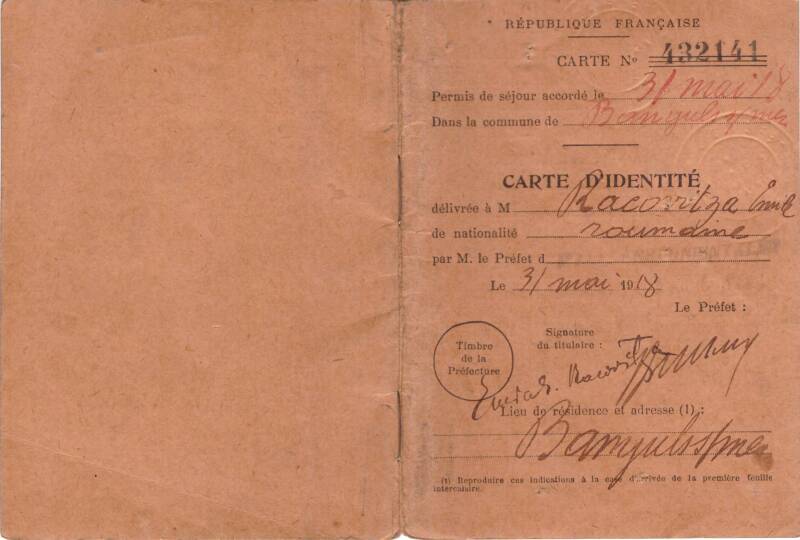 RÉPUBLIQUE FRANÇAISE
CARTE Nº 432141
Permis de séjour accordé le 31 mai 18
Dans la commune de Banyuls s/mer
CARTE D'IDENTITÉ
délivrée à M Racovitza Émile
de nationalité roumaine
par M. le Préfet d
Le 31 mai 1918
Le Préfet :
Signature
du titulaire :
Timbre
de la
Préfecture
Racovitza
Lieu de résidence et adresse (1) :
Banyuls s/mer
(1) Reproduire ces indications à la case d'arrivée de la première feuille
intercalaire.